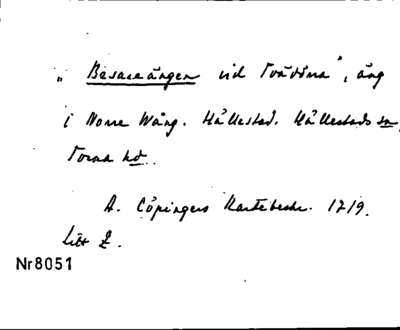 „ Besareängen vid Tvärörna", äng
i Norre Wång. Hållestad. Hållestads sn,
Torna hd.
A. Cöpingers Kartebeskr. 1719.
Litt Z.
Nr8051